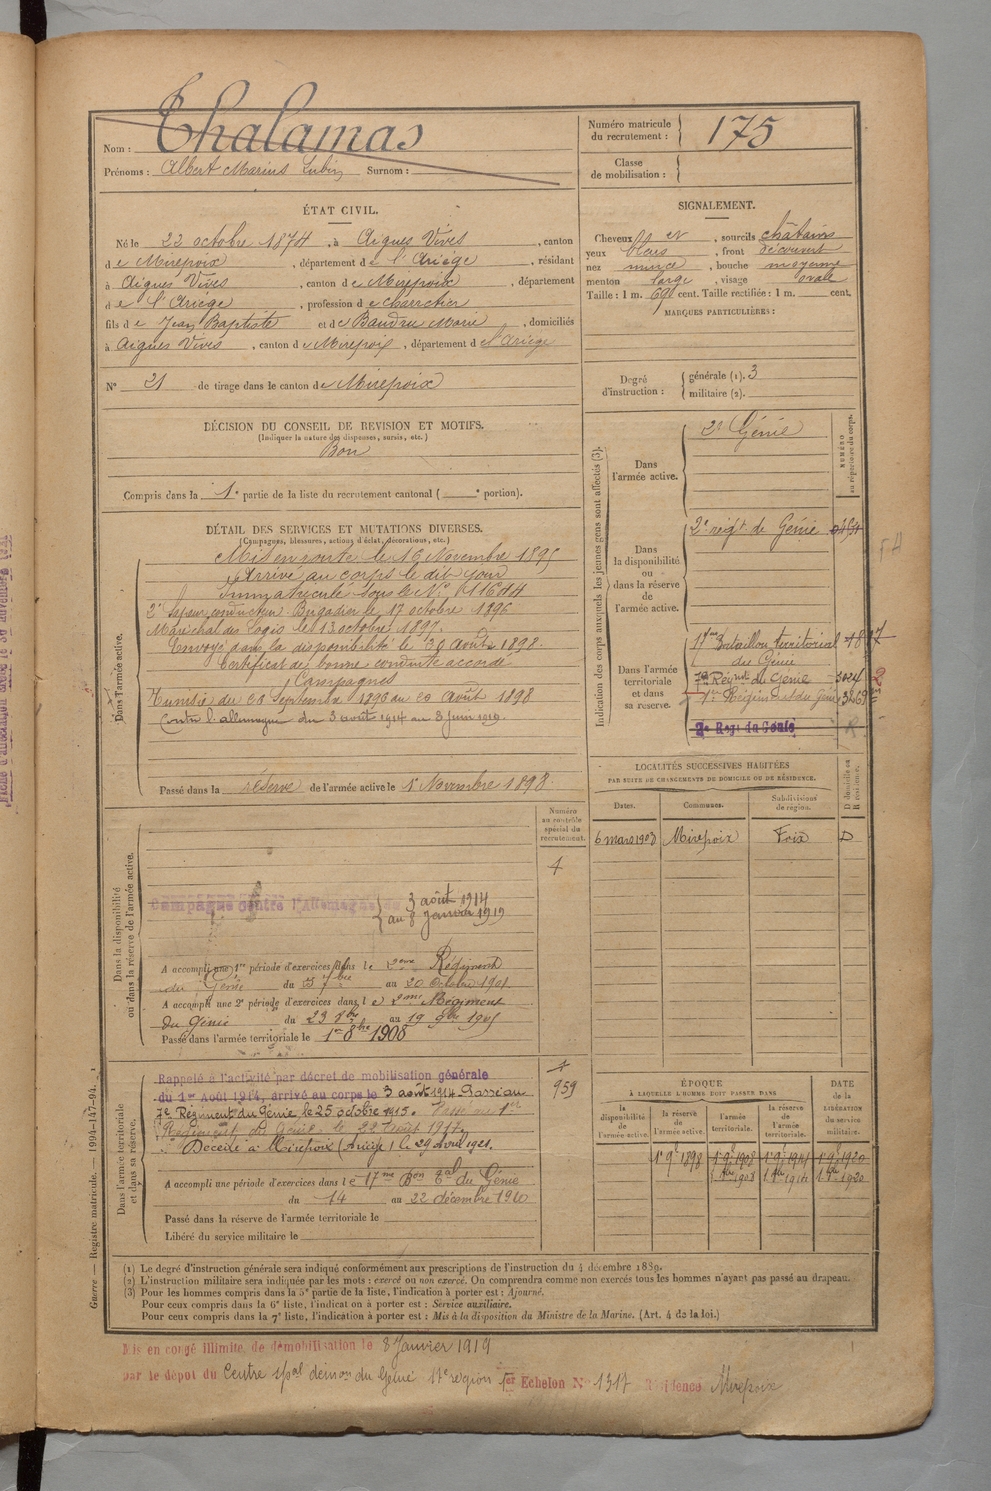 Nom : Thalamas
Prénoms : Albert Marius Surnom :
Numéro matricule du recrutement : 175
Classe de mobilisation :
ÉTAT CIVIL.
Né le 22 octobre 1874, à Aigues Vives, canton
de Mirepoix, département de l'Ariége, résidant
à Aigues Vives, canton de Mirepoix, département
de l'Ariége, profession de charretier
fils de Jean Baptiste et de Marie, domiciliés
à Aigues Vives, canton de Mirepoix, département de l'Ariége
N° 21 de tirage dans le canton de Mirepoix
SIGNALEMENT.
Cheveux et, sourcils châtains
yeux, front découvert
nez mince, bouche moyenne
menton large, visage ovale
Taille : 1 m. 69 cent. Taille rectifiée : 1 m. cent.
MARQUES PARTICULIÈRES :
Degré d'instruction : générale (1). 3
militaire (2).
DÉCISION DU CONSEIL DE REVISION ET MOTIFS.
(Indiquer la nature des dispenses, sursis, etc.)
Bon
Compris dans la 1e partie de la liste du recrutement cantonal ( e portion).
DÉTAIL DES SERVICES ET MUTATIONS DIVERSES.
(Campagnes, blessures, actions d'éclat, décorations, etc.)
Dans l'armée active.
Mis en route le 16 Novembre 1895
Arrivé au corps le dit jour
Immatriculé sous le N°
2e Sapeur conducteur. Brigadier le 17 octobre 1896
Maréchal des Logis le 13 octobre 1897.
Envoyé dans la disponibilité le 30 Août 1898.
Certificat de bonne conduite accordé
Campagnes
Tunisie du Septembre 1896 au 20 Août 1898
Contre l'allemagne du 3 août 1914 au 8 Juin 1919.
Passé dans la réserve de l'armée active le 1er Novembre 1898
Indication des corps auxquels les jeunes gens sont affectés (3).
NUMÉRO au répertoire du corps.
Dans l'armée active.
2e Génie
Dans la disponibilité ou dans la réserve de l'armée active.
2e régt de Génie
Dans l'armée territoriale et dans sa réserve.
17me Bataillon territorial
du Génie
7e Régt du Génie
1er Régiment du Génie
2e Regt du Génie
LOCALITÉS SUCCESSIVES HABITÉES
PAR SUITE DE CHANGEMENTS DE DOMICILE OU DE RÉSIDENCE.
Dates. Communes. Subdivisions de région. D domicile ou R résidence.
6 mars 1903 Mirepoix Foix D
Numéro au contrôle spécial du recrutement.
Dans la disponibilité ou dans la réserve de l'armée active.
Campagne contre l'Allemagne du 3 août 1914
au 8 Janvier 1919
A accompli une 1re période d'exercices dans le 2eme Régiment
du Génie du au 20 Octobre 1901
A accompli une 2e période d'exercices dans le 2eme Régiment
du Génie du 23 8bre au 19 9bre 1905
Passé dans l'armée territoriale le 1er 8bre 1908
Dans l'armée territoriale et dans sa réserve.
959
Rappelé à l'activité par décret de mobilisation générale
du 1er Août 1914, arrivé au corps le 3 août 1914. Passé au
7e Régiment du Génie, le 25 octobre 1915. Passé au 1er
Régiment du Génie le 22 Août 1917.
Décédé à Mirepoix (Ariège) le 29 Avril 1921.
A accompli une période d'exercices dans le 17me Bon Tal du Génie
du 14 au 22 décembre 1910
Passé dans la réserve de l'armée territoriale le
Libéré du service militaire le
ÉPOQUE
À LAQUELLE L'HOMME DOIT PASSER DANS
DATE de la LIBÉRATION du service militaire.
la disponibilité de l'armée active. la réserve de l'armée active. l'armée territoriale. la réserve de l'armée territoriale.
1er 9e 1898 1er 9e 1908 1er 9e 1914 1er 9e 1920
1er 8bre 1908 1er 8bre 1914 1er 8bre 1920
(1) Le degré d'instruction générale sera indiqué conformément aux prescriptions de l'instruction du 4 décembre 1889.
(2) L'instruction militaire sera indiquée par les mots : exercé ou non exercé. On comprendra comme non exercés tous les hommes n'ayant pas passé au drapeau.
(3) Pour les hommes compris dans la 5e partie de la liste, l'indication à porter est : Ajourné.
Pour ceux compris dans la 6e liste, l'indication à porter est : Service auxiliaire.
Pour ceux compris dans la 7e liste, l'indication à porter est : Mis à la disposition du Ministre de la Marine. (Art. 4 de la loi.)
Guerre — Registre matricule. — 1994-147-94.
Mis en congé illimité de démobilisation le 8 Janvier 1919
par le dépôt du Centre spal démon du Génie 17e région 1er Echelon N° 1317 Résidence Mirepoix